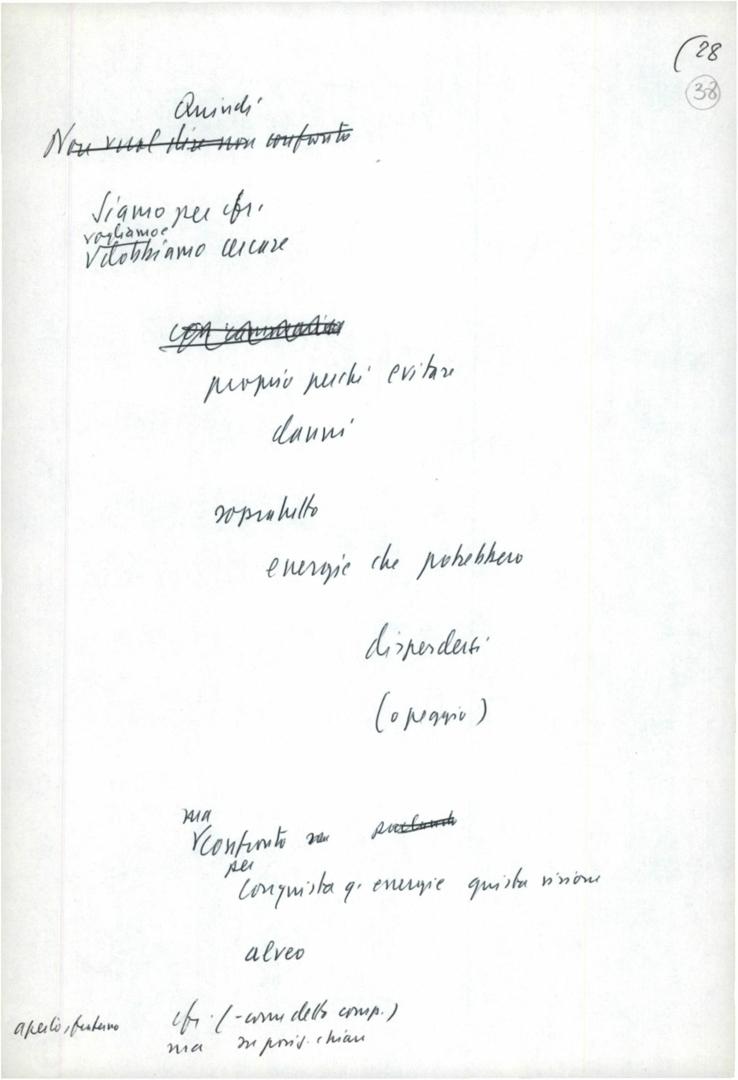 (28
38
Quindi
Non vuol dire non confronto
Siamo per cfr.
vogliamo e
dobbiamo cercare
proprio perché evitare
danni
sopratutto
energie che potrebbero
disperdersi
(o peggio)
ma
confronto su
per
conquista q. energie giusta visione
alveo
aperto, fraterno cfr. (-come detto comp.)
ma su posiz. chiare